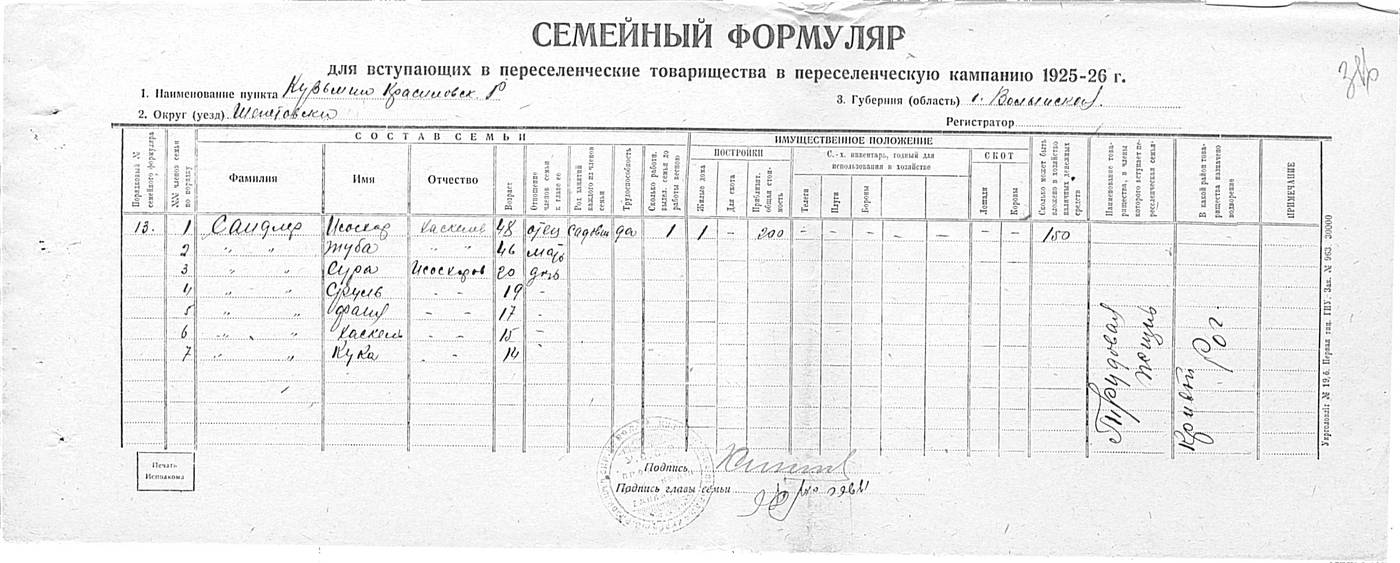 СЕМЕЙНЫЙ ФОРМУЛЯР
для вступающих в переселенческие товарищества в переселенческую кампанию 1925-26 г.
1. Наименование пункта Кузьмин Красиловск. Р
3. Губерния (область) Волынской
2. Округ (уезд) Шепетовки
Регистратор
СОСТАВ СЕМЬИ
ИМУЩЕСТВЕННОЕ ПОЛОЖЕНИЕ
Порядковый № семейного формуляра
№№ членов семьи по порядку
Фамилия
Имя
Отчество
Возраст
Отношение членов семьи к главе ее
Род занятий каждого из членов семьи
Трудоспособность
Сколько работн. вылел. семья до работы весною
ПОСТРОЙКИ
Жилые дома
Для скота
Приблизит. общая стоимость
С.-х. инвентарь, годный для использования в хозяйстве
Телеги
Плуги
Бороны
СКОТ
Лошади
Коровы
Сколько может быть вложено в хозяйство наличных денежных средств
Наименование товарищества, в члены которого вступает переселенческая семья
В какой район товарищества назначено водворение
ПРИМЕЧАНИЕ
13. 1 Сандлер Исоскар Хаскелев 48 отец Садовн да 1 1 – 200 – – – – – – – 150 – – –
2 " " Туба " " 46 мать
3 " " Сура Исоскаров 20 дочь
4 " " Сруль - - 19 -
5 " " Фаня - - 17 -
6 " " Хаскель - - 15 -
7 " " Кука - - 14
Трудовая
Кривой Рог
Печать Исполкома
Подпись
Подпись главы семьи
Укрголовліт № 19,6. Первая тип. ГПУ. Зак. № 963. 30000